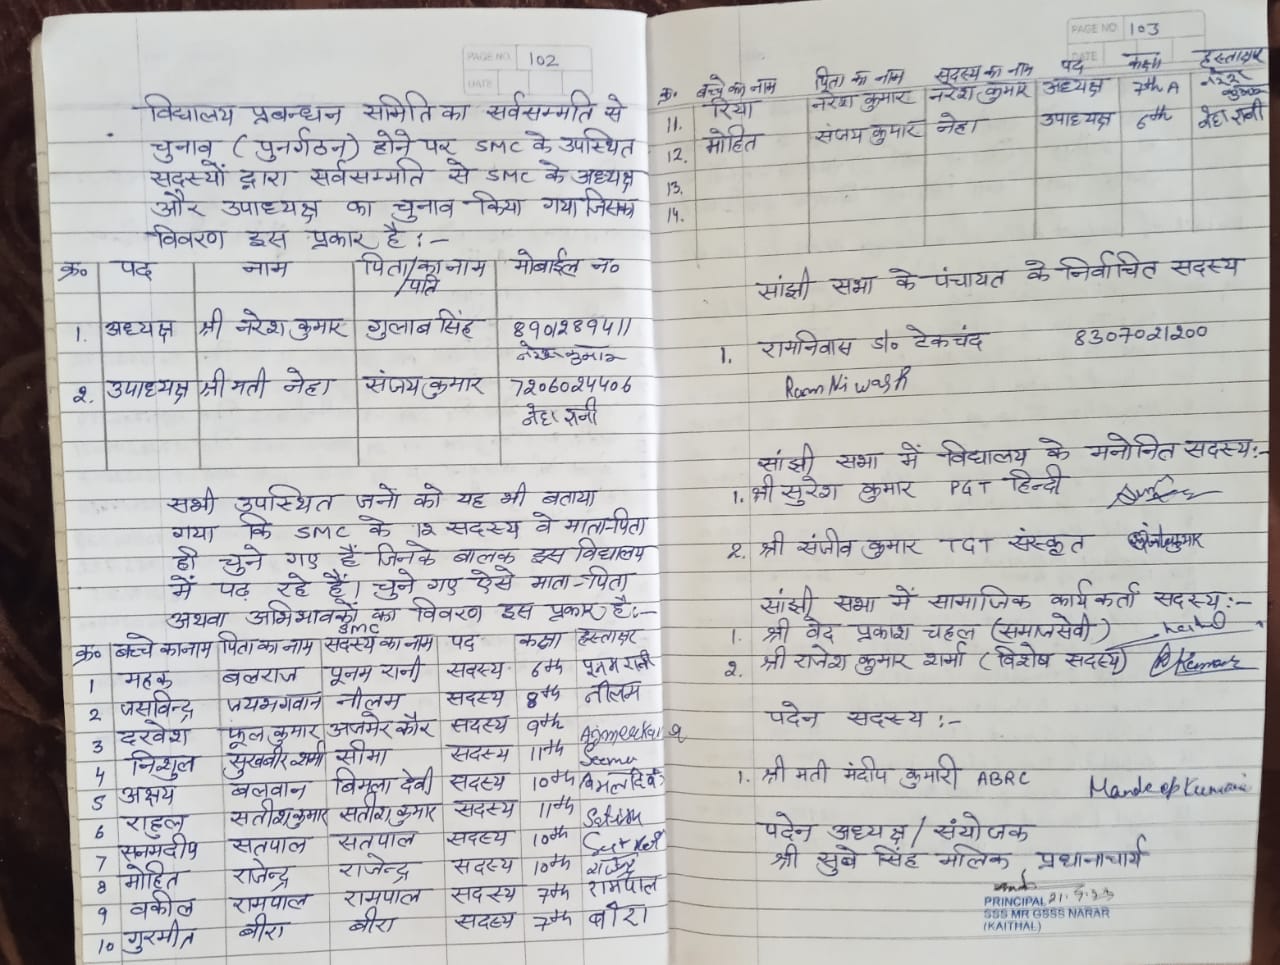 PAGE NO. 102
DATE
विद्यालय प्रबन्धन समिति का सर्वसम्मति से
चुनाव (पुनर्गठन) होने पर SMC के उपस्थित
सदस्यों द्वारा सर्वसम्मति से SMC के अध्यक्ष
और उपाध्यक्ष का चुनाव किया गया जिसका
विवरण इस प्रकार है :-
क्र० पद नाम पिता/का नाम मोबाईल न०
/पति
1. अध्यक्ष श्री नरेश कुमार गुलाब सिंह 8901289411
नरेश कुमार
2. उपाध्यक्ष श्रीमती नेहा संजय कुमार 7206024406
नेहा रानी
सभी उपस्थित जनों को यह भी बताया
गया कि SMC के 12 सदस्य वे माता-पिता
ही चुने गए हैं जिनके बालक इस विद्यालय
में पढ़ रहे हैं। चुने गए ऐसे माता-पिता
अथवा अभिभावकों का विवरण इस प्रकार है:-
SMC
क्र० बच्चे का नाम पिता का नाम सदस्य का नाम पद कक्षा हस्ताक्षर
1 महक बलराज पूनम रानी सदस्य 6th पूनम रानी
2 जसविन्द्र जयभगवान नीलम सदस्य 8th नीलम
3 दरवेश फूल कुमार अजमेर कौर सदस्य 9th
4 निशुल सुखबीर शर्मा सीमा सदस्य 11th Seema
5 अक्षय बलवान बिमला देवी सदस्य 10th
6 राहुल सतीश कुमार सतीश कुमार सदस्य 11th
7 सनमदीप सतपाल सतपाल सदस्य 10th
8 मोहित राजेन्द्र राजेन्द्र सदस्य 10th राजेन्द्र
9 वकील रामपाल रामपाल सदस्य 7th रामपाल
10 गुरमीत बीरा बीरा सदस्य 7th बीरा
PAGE NO. 103
DATE
क्र० बच्चे का नाम पिता का नाम सदस्य का नाम पद कक्षा हस्ताक्षर
11. रिया नरेश कुमार नरेश कुमार अध्यक्ष 7th A नरेश कुमार
12. मोहित संजय कुमार नेहा उपाध्यक्ष 6th नेहा रानी
13.
14.
सांझी सभा के पंचायत के निर्वाचित सदस्य
1. रामनिवास S/o टेकचंद 8307021200
Ram Niwash
सांझी सभा में विद्यालय के मनोनित सदस्य:-
1. श्री सुरेश कुमार PGT हिन्दी
2. श्री संजीव कुमार TGT संस्कृत संजीव कुमार
सांझी सभा में सामाजिक कार्यकर्ता सदस्य:-
1. श्री वेद प्रकाश चहल (समाजसेवी)
2. श्री राजेश कुमार शर्मा (विशेष सदस्य) R Kumar
पदेन सदस्य :-
1. श्री मती मंदीप कुमारी ABRC Mandeep Kumari
पदेन अध्यक्ष / संयोजक
श्री सुबे सिंह मलिक प्रधानाचार्य
PRINCIPAL 21.9.23
SSS MR GSSS NARAR
(KAITHAL)